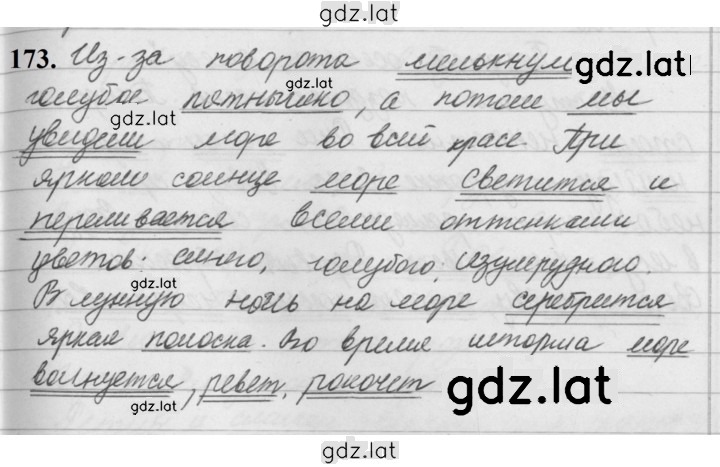 gdz.lat
173. Из-за поворота мелькнул
gdz.lat
gdz.lat
голубое пятнышко, а потом мы
gdz.lat
увидели море во всей красе. При
ярком солнце море светится и
переливается всеми оттенками
цветов: синего, голубого, изумрудного.
gdz.lat
В лунную ночь на море серебрится
яркая полоска. Во время шторма море
волнуется, ревет, рокочет
gdz.lat
gdz.lat
gdz.lat